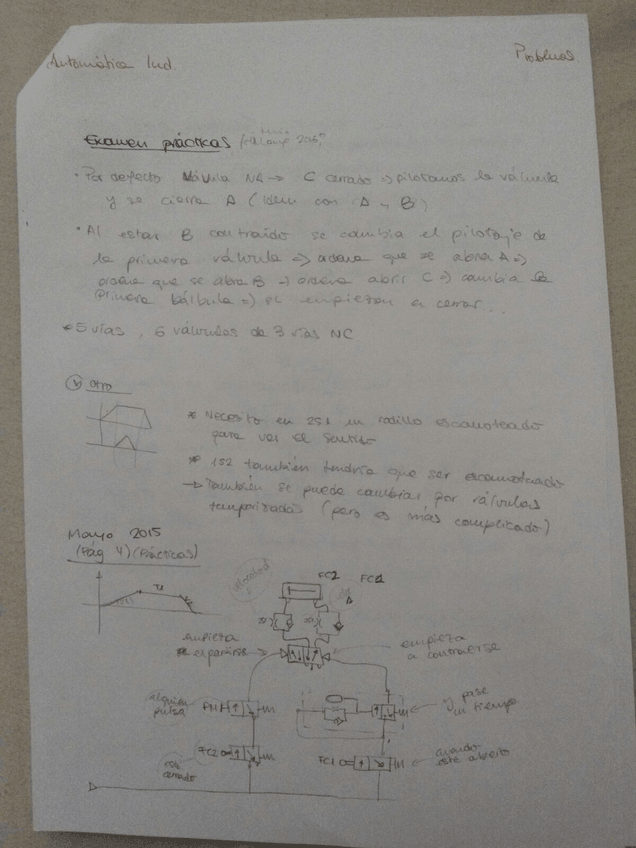 Automática Ind.
Problemas
Examen prácticas
• Por defecto válvula NA → C cerrado → pilotamos la válvula
y se cierra A (idem con A y B)
• Al estar B contraído se cambia el pilotaje de
la primera válvula => ordena que se abra A =>
ordena que se abra B → ordena abrir C => cambia la
primera bálbula => se empiezan a cerrar...
• 5 vías, 6 válvulas de 3 vías NC
b) Otro
* Necesito en 2S1 un rodillo escamoteado
para ver el sentido
* 1S2 también tendría que ser escamoteado
→ También se puede cambiar por válvulas
temporizadas (pero es más complicado)
Mayo 2015
(Pág 4) (Prácticas)
FC2
FC1
empieza
a contraerse
alguien
pulsa
y pase
un tiempo
FC2
este
cerrado
FC1
cuando
este abierto